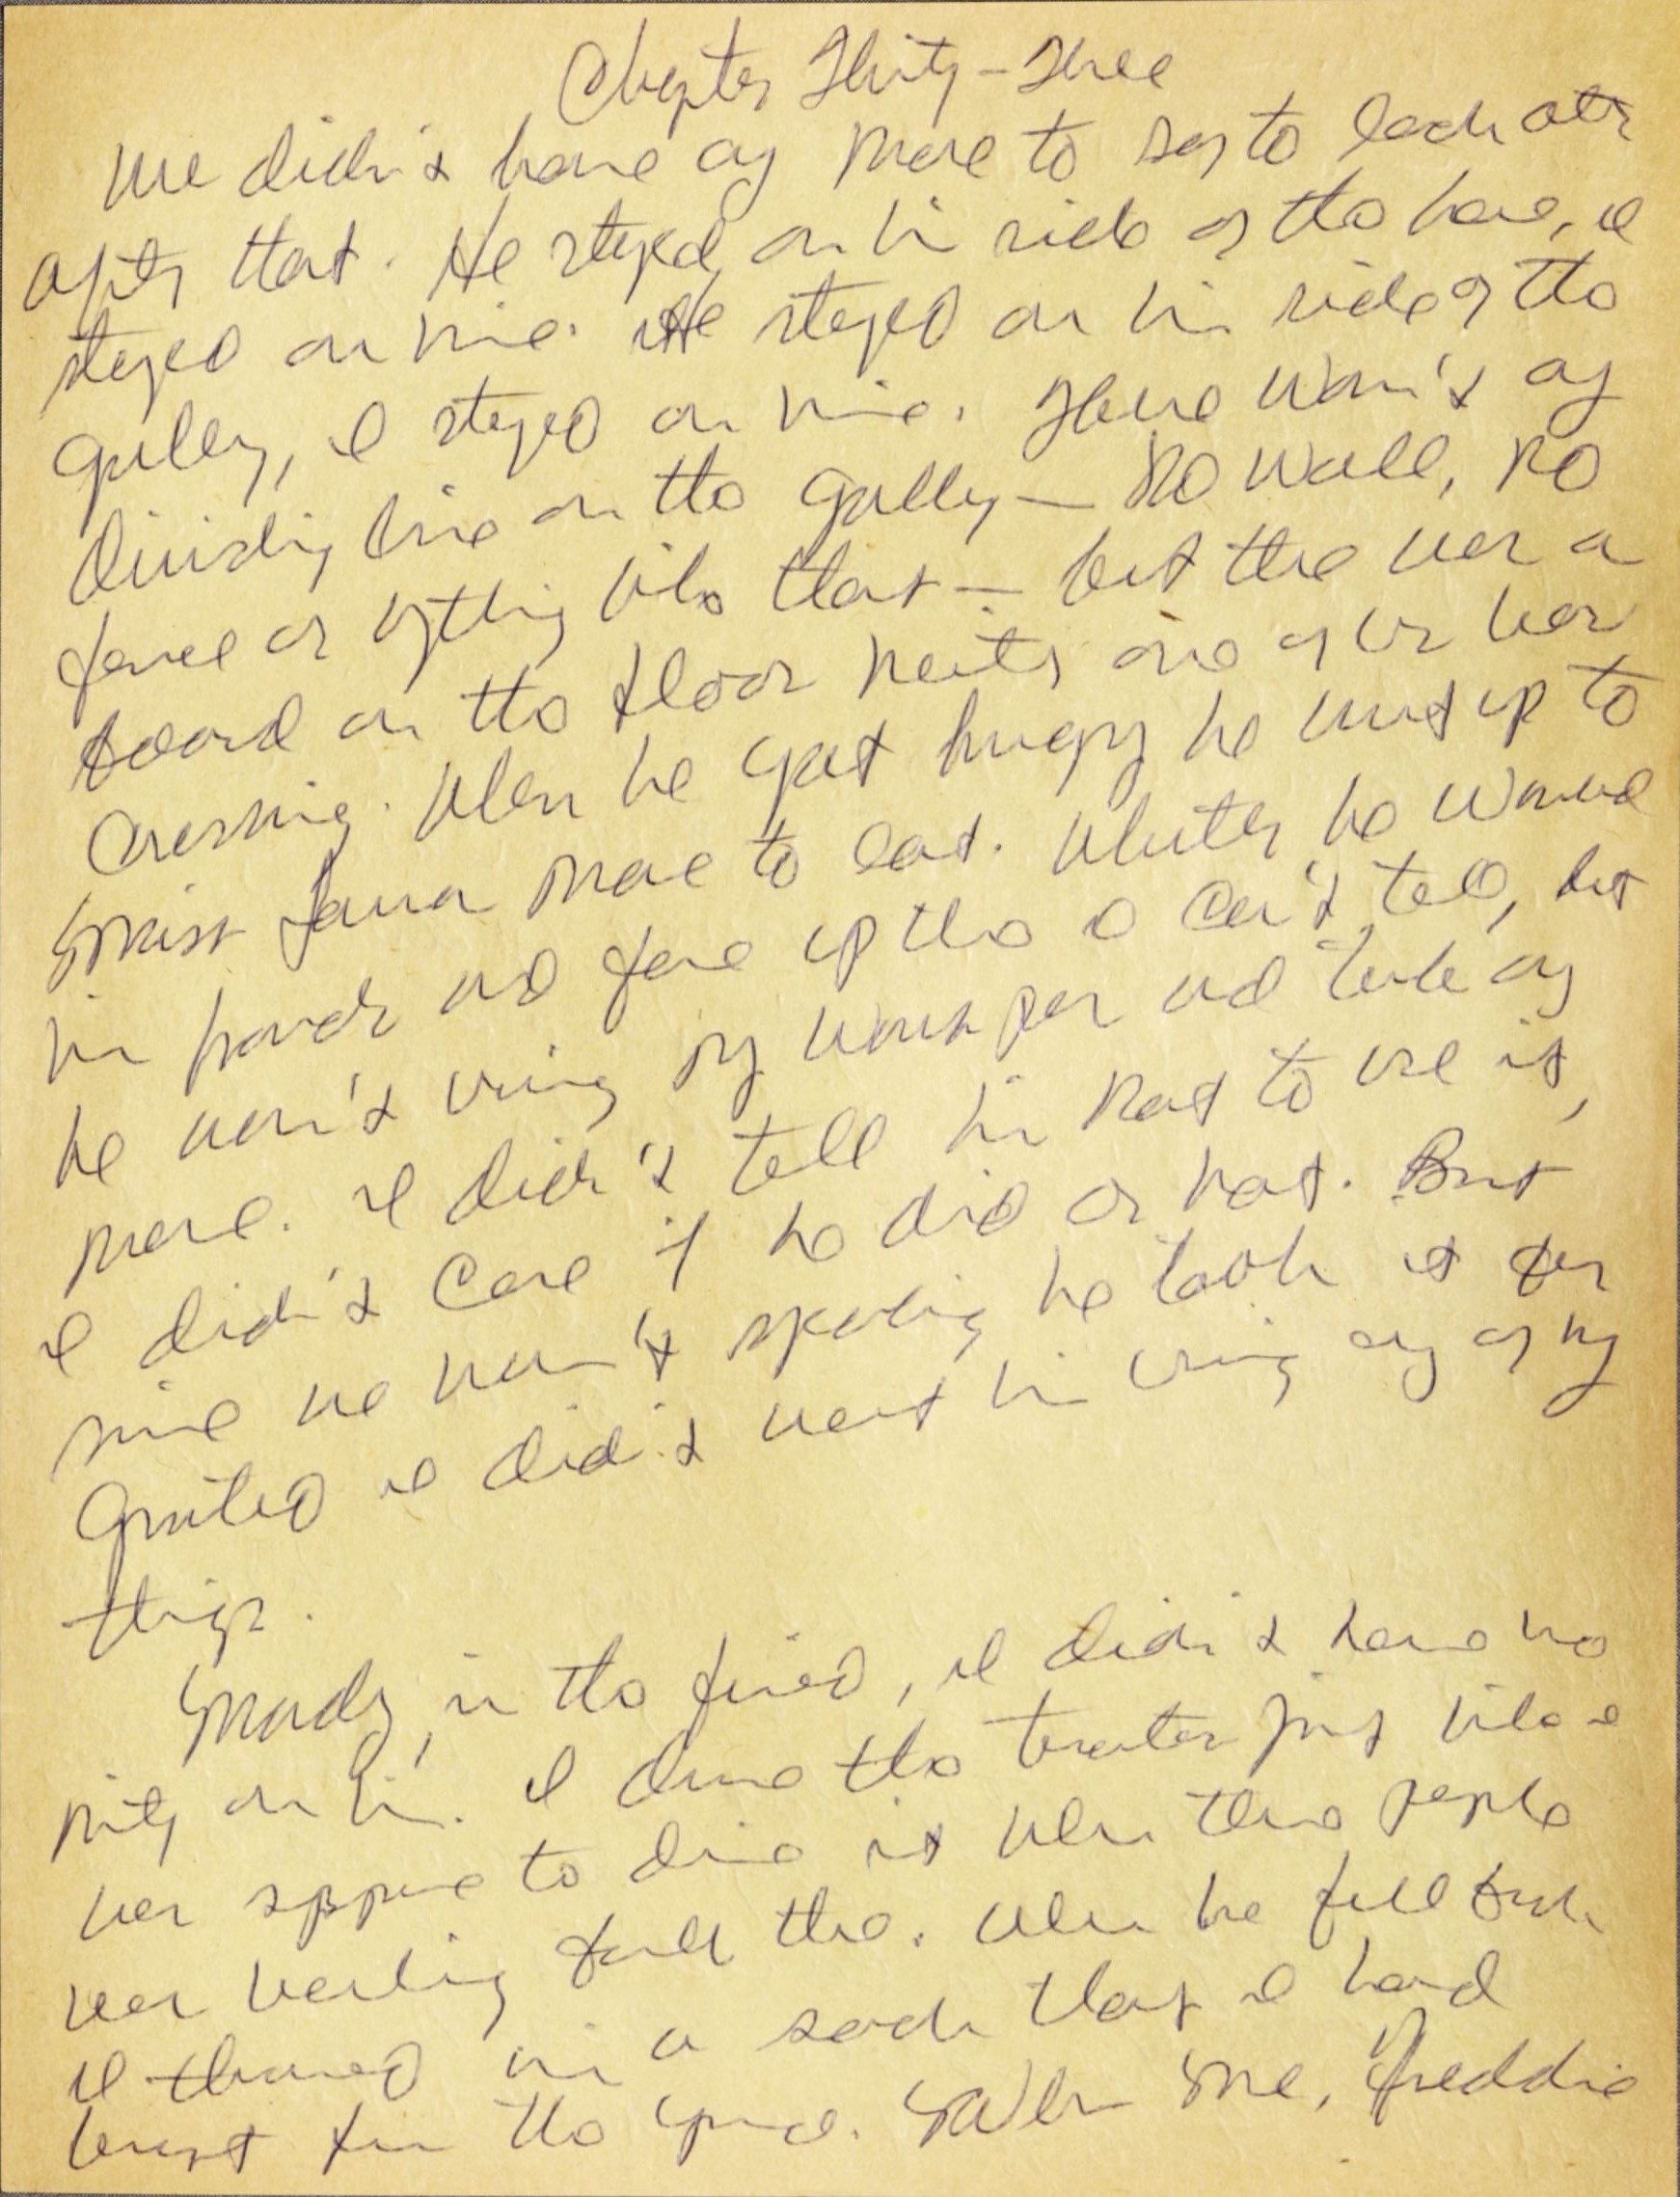 Chapter Thirty-Three
We didn't have any more to say to each other
after that. He stayed on his side of the house, I
stayed on mine. He stayed on his side of the
galley, I stayed on mine. There wasn't any
dividing line on the galley — no wall, no
fence or anything like that — but there was a
board on the floor neither one of us was
crossing. When he got hungry he went up to
Miss Laura Mae to eat. Whether he washed
his hands and face up there I can't tell, but
he wasn't using my wash pan and towel any
more. I didn't tell him not to use it,
I didn't care if he did or not. But
since we wasn't speaking he took it for
granted I didn't want him using any of my
things.
Monday, in the field, I didn't have no
pity on him. I drove the tractor just like I
was suppose to drive it when three people
was working back there. When he fell back
I throwed him a sack that I had
brought from the yard. When me, Freddie